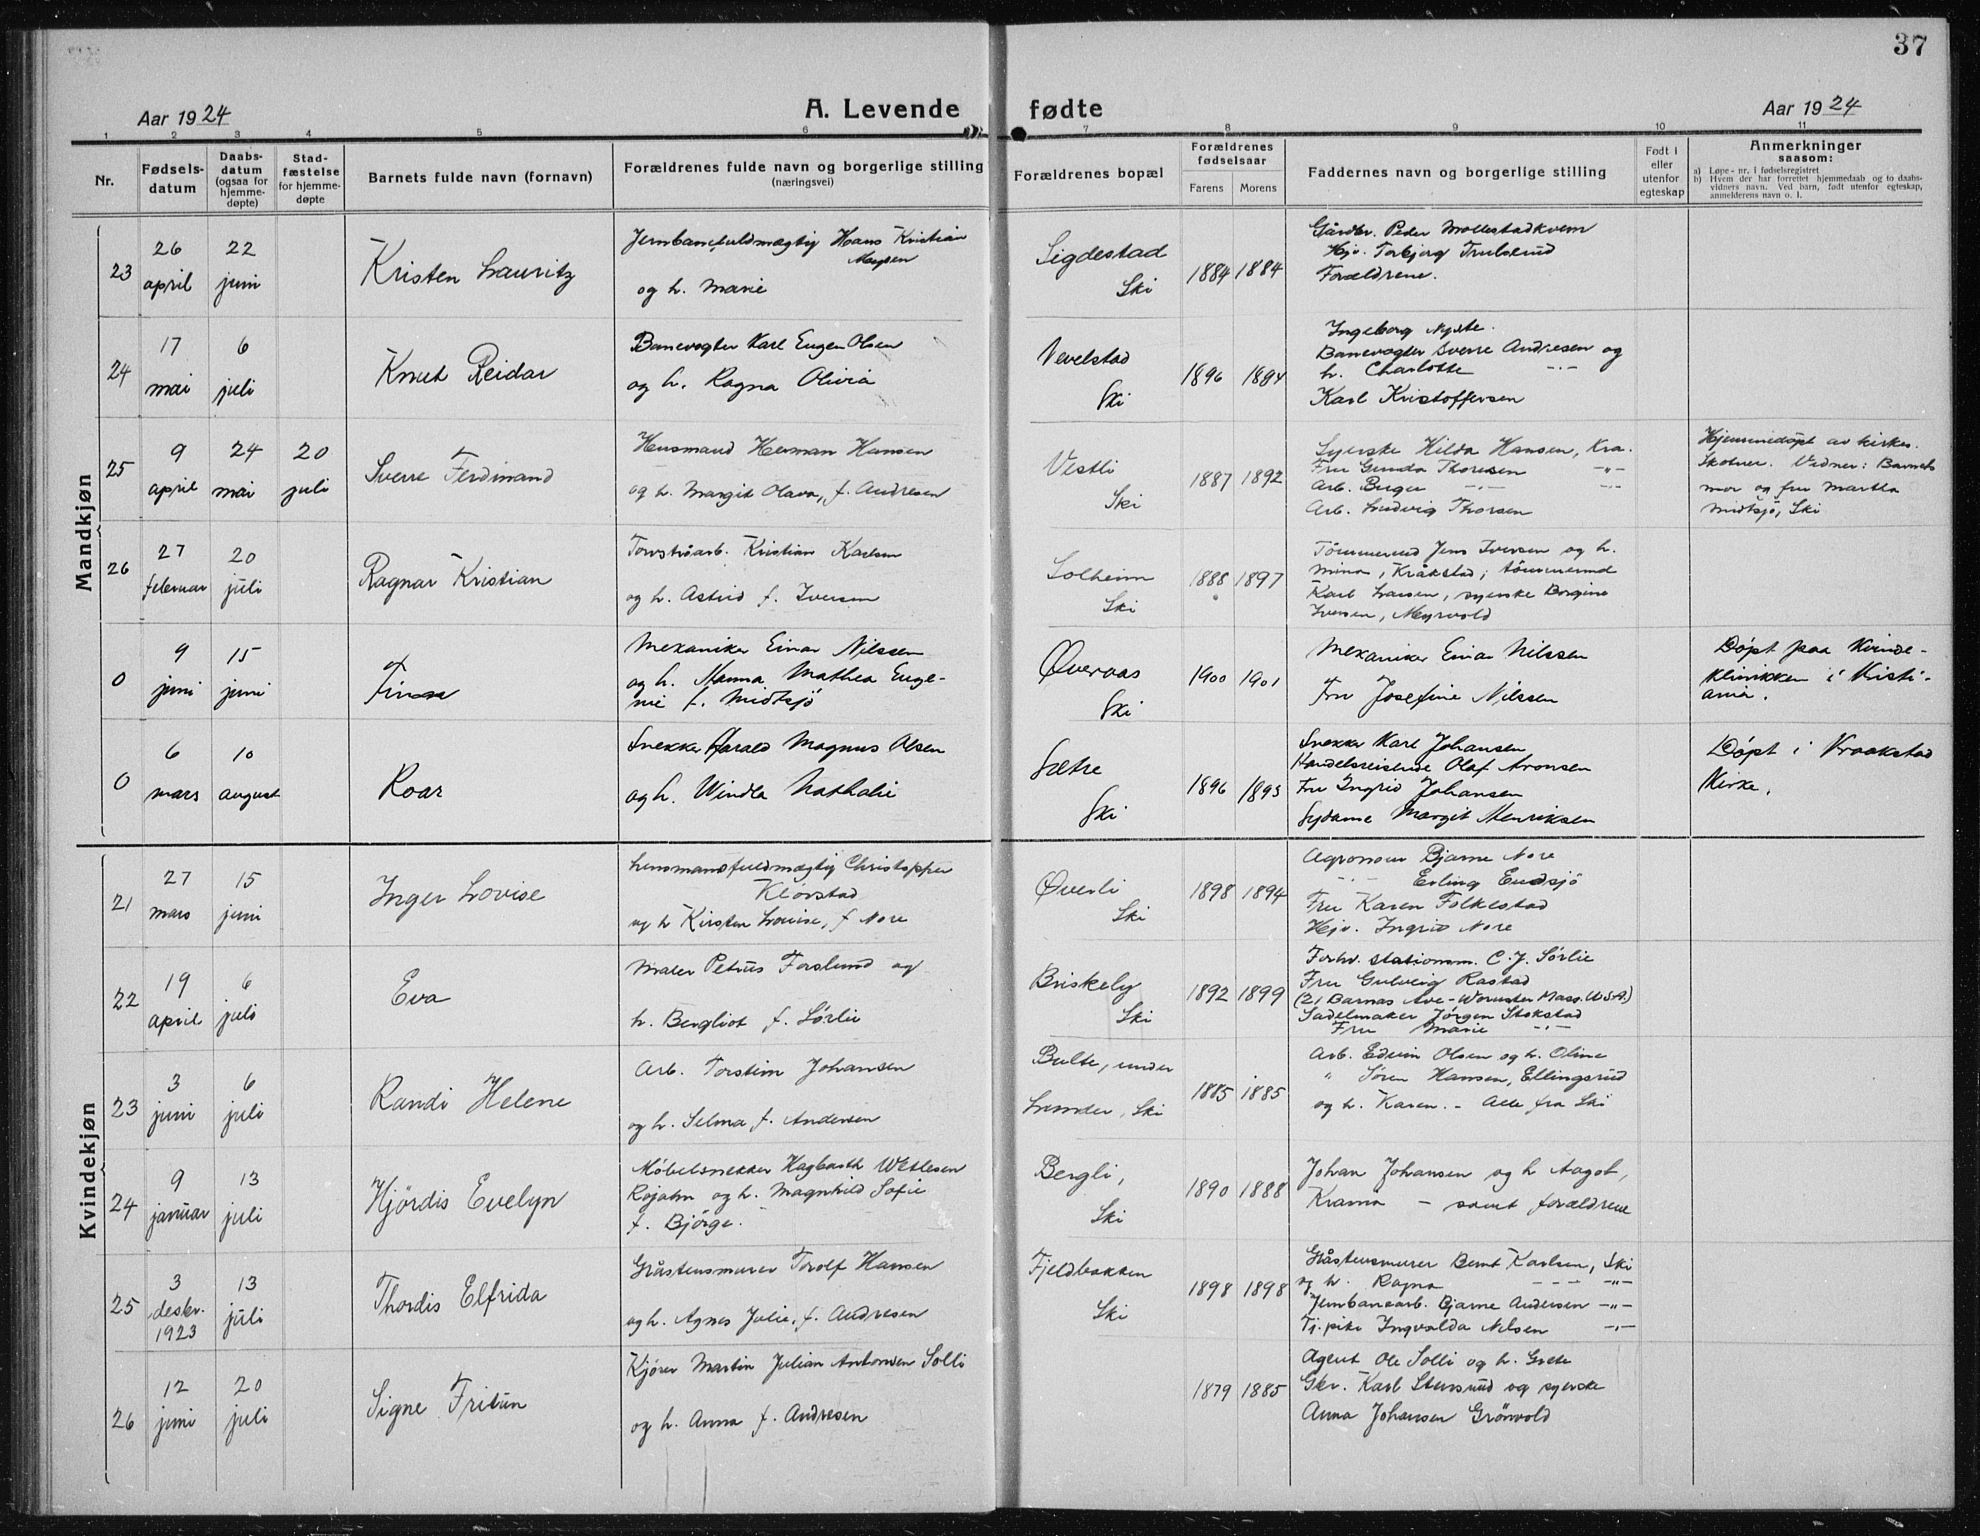 37
Aar 1924
A. Levende
fødte
Aar 1924
1 2 3 4 5 6 7 8 9 10 11
Nr.
Fødsels-
datum
Daabs-
datum
(ogsaa for
hjemme-
døpte)
Stad-
fæstelse
for hjemme-
døpte
Barnets fulde navn (fornavn)
Forældrenes fulde navn og borgerlige stilling
(næringsvei)
Forældrenes bopæl
Forældrenes
fødselsaar
Farens Morens
Faddernes navn og borgerlige stilling
Født i
eller
utenfor
egteskap
Anmerkninger
saasom:
a) Løpe-nr. i fødselsregistret
b) Hvem der har forrettet hjemmedaab og to daabs-
vidners navn. Ved barn, født utenfor egteskap,
anmelderens navn o. l.
Mandkjøn
23
26
april
22
juni
Kristen Lauritz
Jernbanefuldmægtig Hans Kristian
og h. Marie
Sigdestad
Ski
1884 1884
Gårdbr. Peder Mollestadkvern
Hjv. Torbjørg Trulserud
Forældrene.
24
17
mai
6
juli
Knut Reidar
Banevogter Karl Eugen Olsen
og h. Ragna Olivia
Vevelstad
Ski
1896 1894
Ingeborg
Banevogter Sverre Andresen og
h. Charlotte -"-
Karl Kristoffersen
25
9
april
24
mai
20
juli
Sverre Ferdinand
Husmand Herman Hansen
og h. Margit Olava, f. Andresen
Vestli
Ski
1887 1892
Syerske Hilda Hansen, Kra.
Fru Gunda Thoresen -"-
Arb. Birger -"- -"-
Arb. Ludvig Thorsen
Hjemmedøpt av kirkes.
Skotner. Vidner: Barnets
mor og fru Martha
Midtsjø, Ski
26
27
februar
20
juli
Ragnar Kristian
Torvstrøarb. Kristian Karlsen
og h. Astrid f. Iversen
Solheim
Ski
1888 1897
Tømmermd Jens Iversen og h.
Mina, Kråkstad; tømmermd
Karl Larsen, syerske Borgine
Iversen, Myrvold
0
9
juni
15
juni
Finn
Mekaniker Einar Nilssen
og h. Nanna Mathea Euge-
nie f. Midtsjø
Øveraas
Ski
1900 1901
Mekaniker Einar Nilssen
Fru Josefine Nilssen
Døpt paa Kvinde-
klinikken i Kristi-
ania.
0
6
mars
10
august
Roar
Snekker Harald Magnus Olsen
og h. Windla Nathalie
Sætre
Ski
1896 1893
Snekker Karl Johansen
Handelsreisende Olaf Aronsen
Fru Ingrid Johansen
Sydame Margit Henriksen
Døpt i Kraakstad
Kirke.
Kvindekjøn
21
27
mars
15
juni
Inger Lovise
Lensmansfuldmægtig Christopher
Kløvstad
og h Kirsten Louise, f Nore
Øverli
Ski
1898 1894
Agronom Bjarne Nore
-"- Erling Endsjø
Fru Karen Folkestad
Hjv. Ingrid Nore
22
19
april
6
juli
Eva
Maler Petrus Forslund og
h. Bergliot f. Sørlie
Briskeby
Ski
1892 1899
Forhv. stationsm. C. J. Sørlie
Fru Gulveig Rastad
(21 Barnas Ave - Worcester Mass. U.S.A.)
Sadelmaker Jørgen Stokstad
Fru Marie -"-
23
3
juni
6
juli
Randi Helene
Arb. Torstein Johansen
og h. Selma f. Andersen
Bulte, under
Lunder, Ski
1885 1885
Arb. Edvin Olsen og h. Oline
" Søren Hansen, Ellingsrud
og h. Karen. - Alle fra Ski
24
9
januar
13
juli
Hjørdis Evelyn
Møbelsnekker Hagbarth Wetlesen
Rojahn og h. Magnhild Sofie
f. Bjørge.
Bergli,
Ski
1890 1888
Johan Johansen og h Aagot,
Krania - samt forældrene
25
3
desbr.
1923
13
juli
Thordis Elfrida
Gråstensmurer Torolf Hansen
og h. Agnes Julie, f. Andresen
Fjeldbakken
Ski
1898 1898
Gråstensmurer Bernt Karlsen, Ski
og h. Ragna - - - -"-
Jernbanearb. Bjarne Andersen -"-
Tj.pike Ingvalda Nilsen -"-
26
12
juni
20
juli
Signe Fritun
Kjører Martin Julian Antonsen Solli
og h. Anna f. Andresen
1879 1885
Agent Ole Solli og h. Grete
Gbr. Karl Stensrud og syerske
Anna Johansen Grønvold